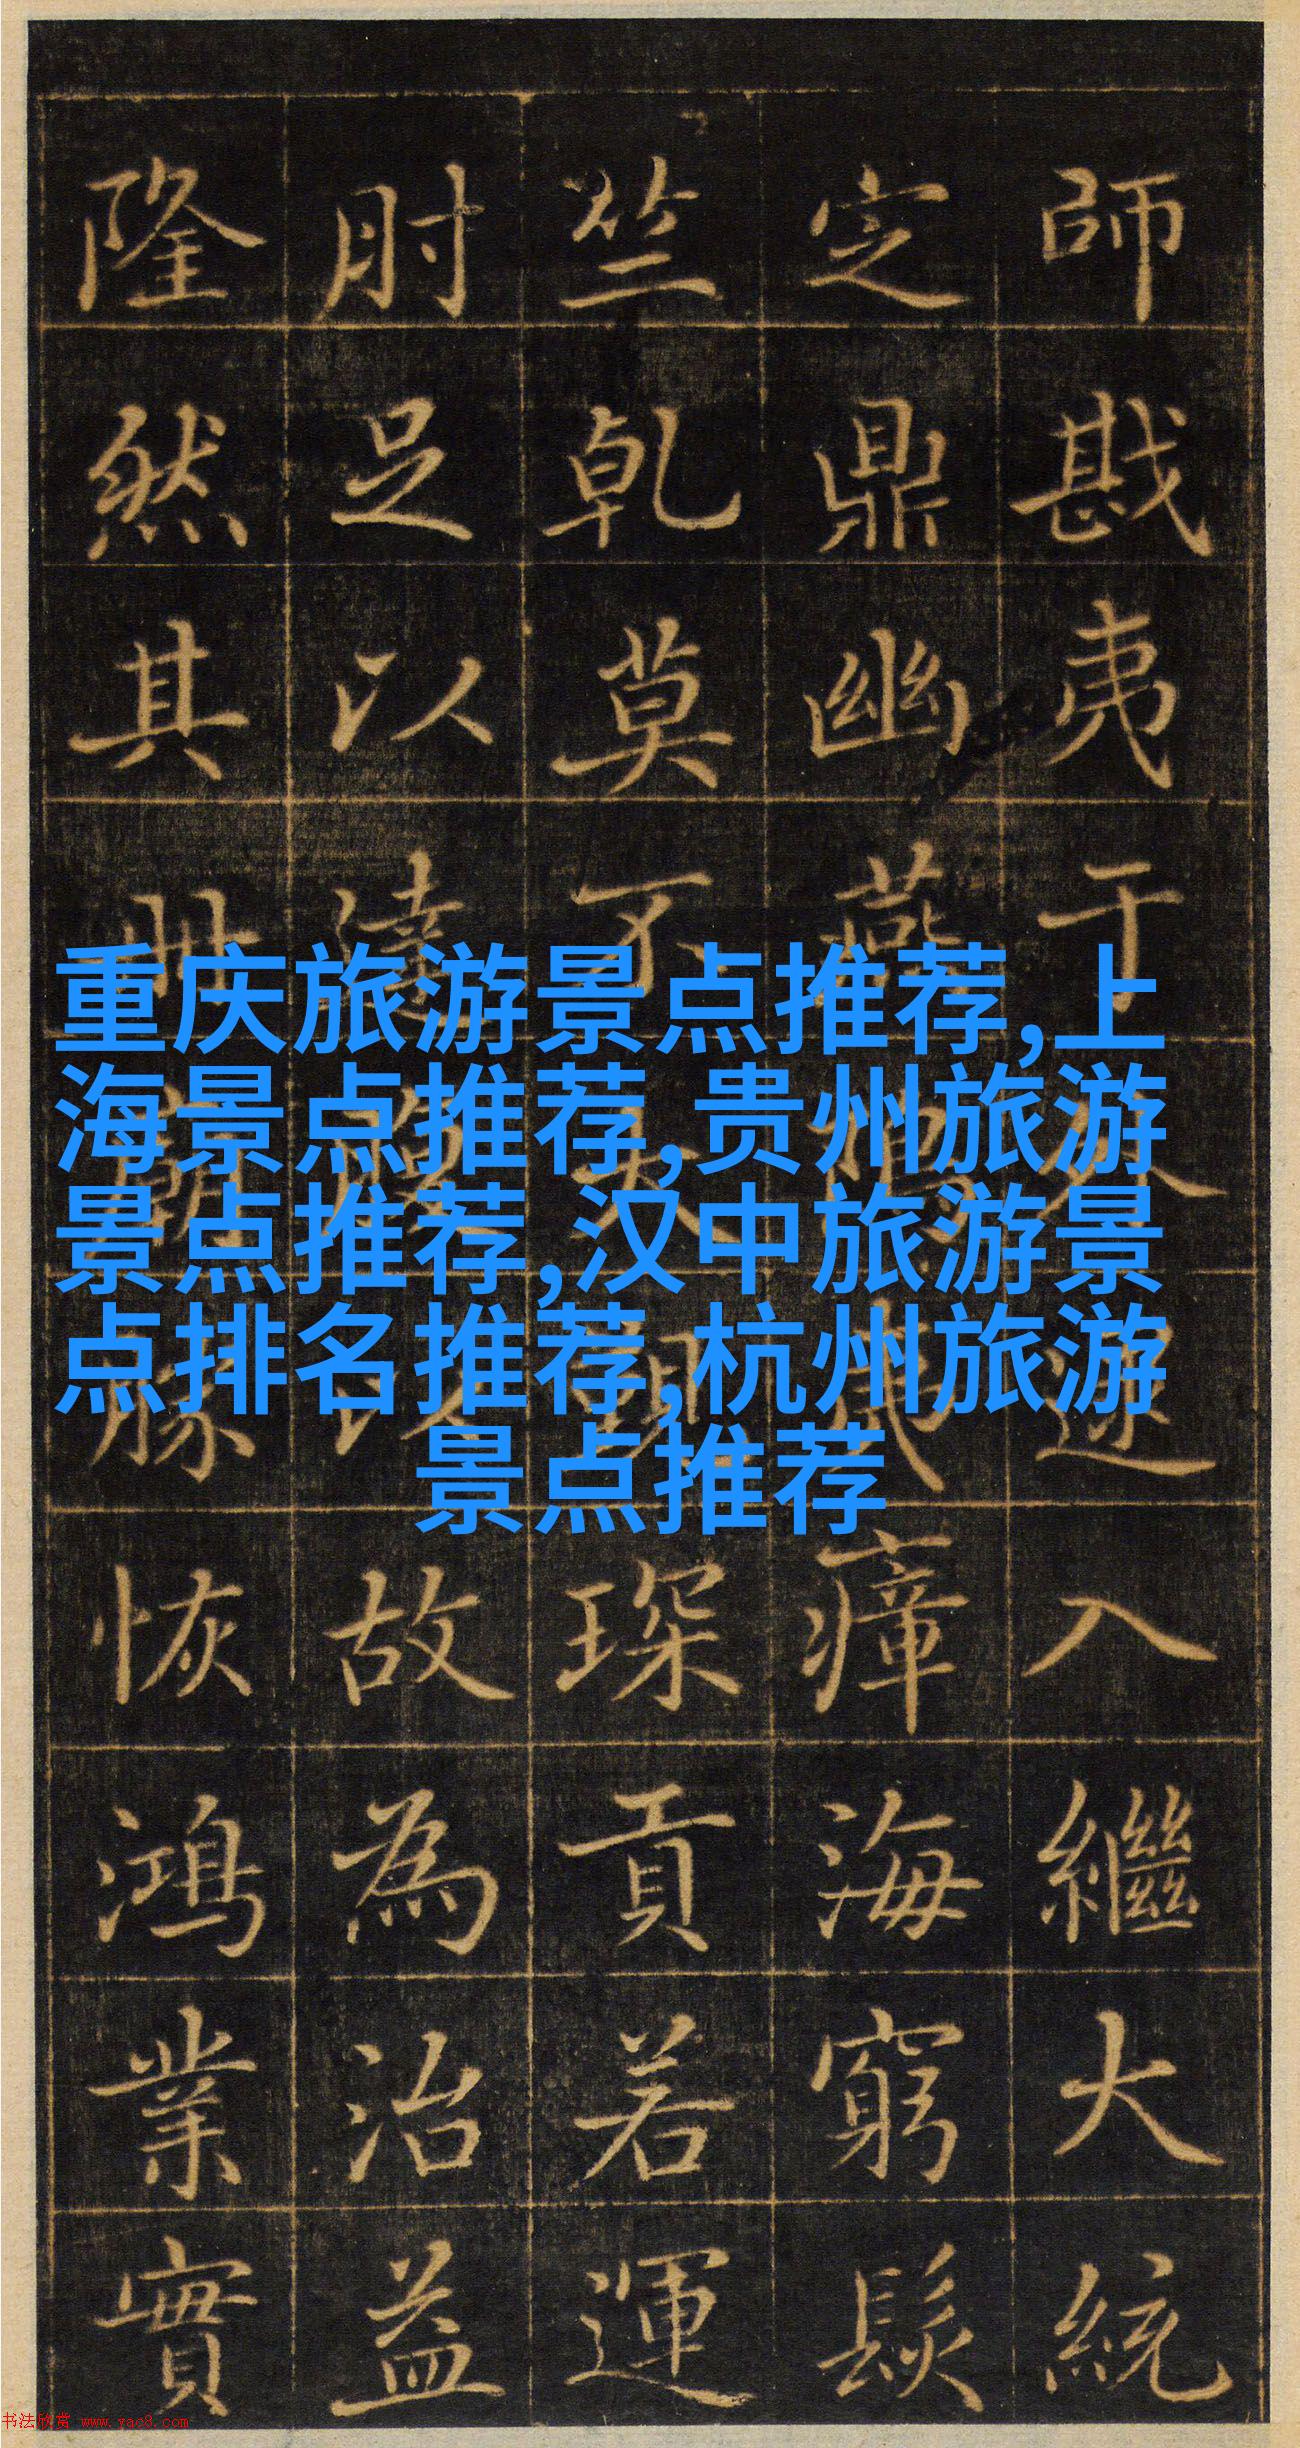 師戡夷于遂入繼大統
定鼎幽燕瘴海窮髮
竺乾莫不琛貢若運
肘足以達以故為治益
隆然其冊勝恢鴻業實
重庆旅游景点推荐,上
海景点推荐,贵州旅游
景点推荐,汉中旅游景
点排名推荐,杭州旅游
景点推荐
书法欣赏 www.yac8.com